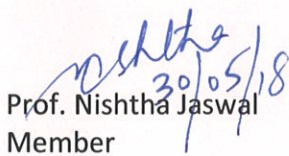 Nishtha
30/05/18
Prof. Nishtha Jaswal
Member